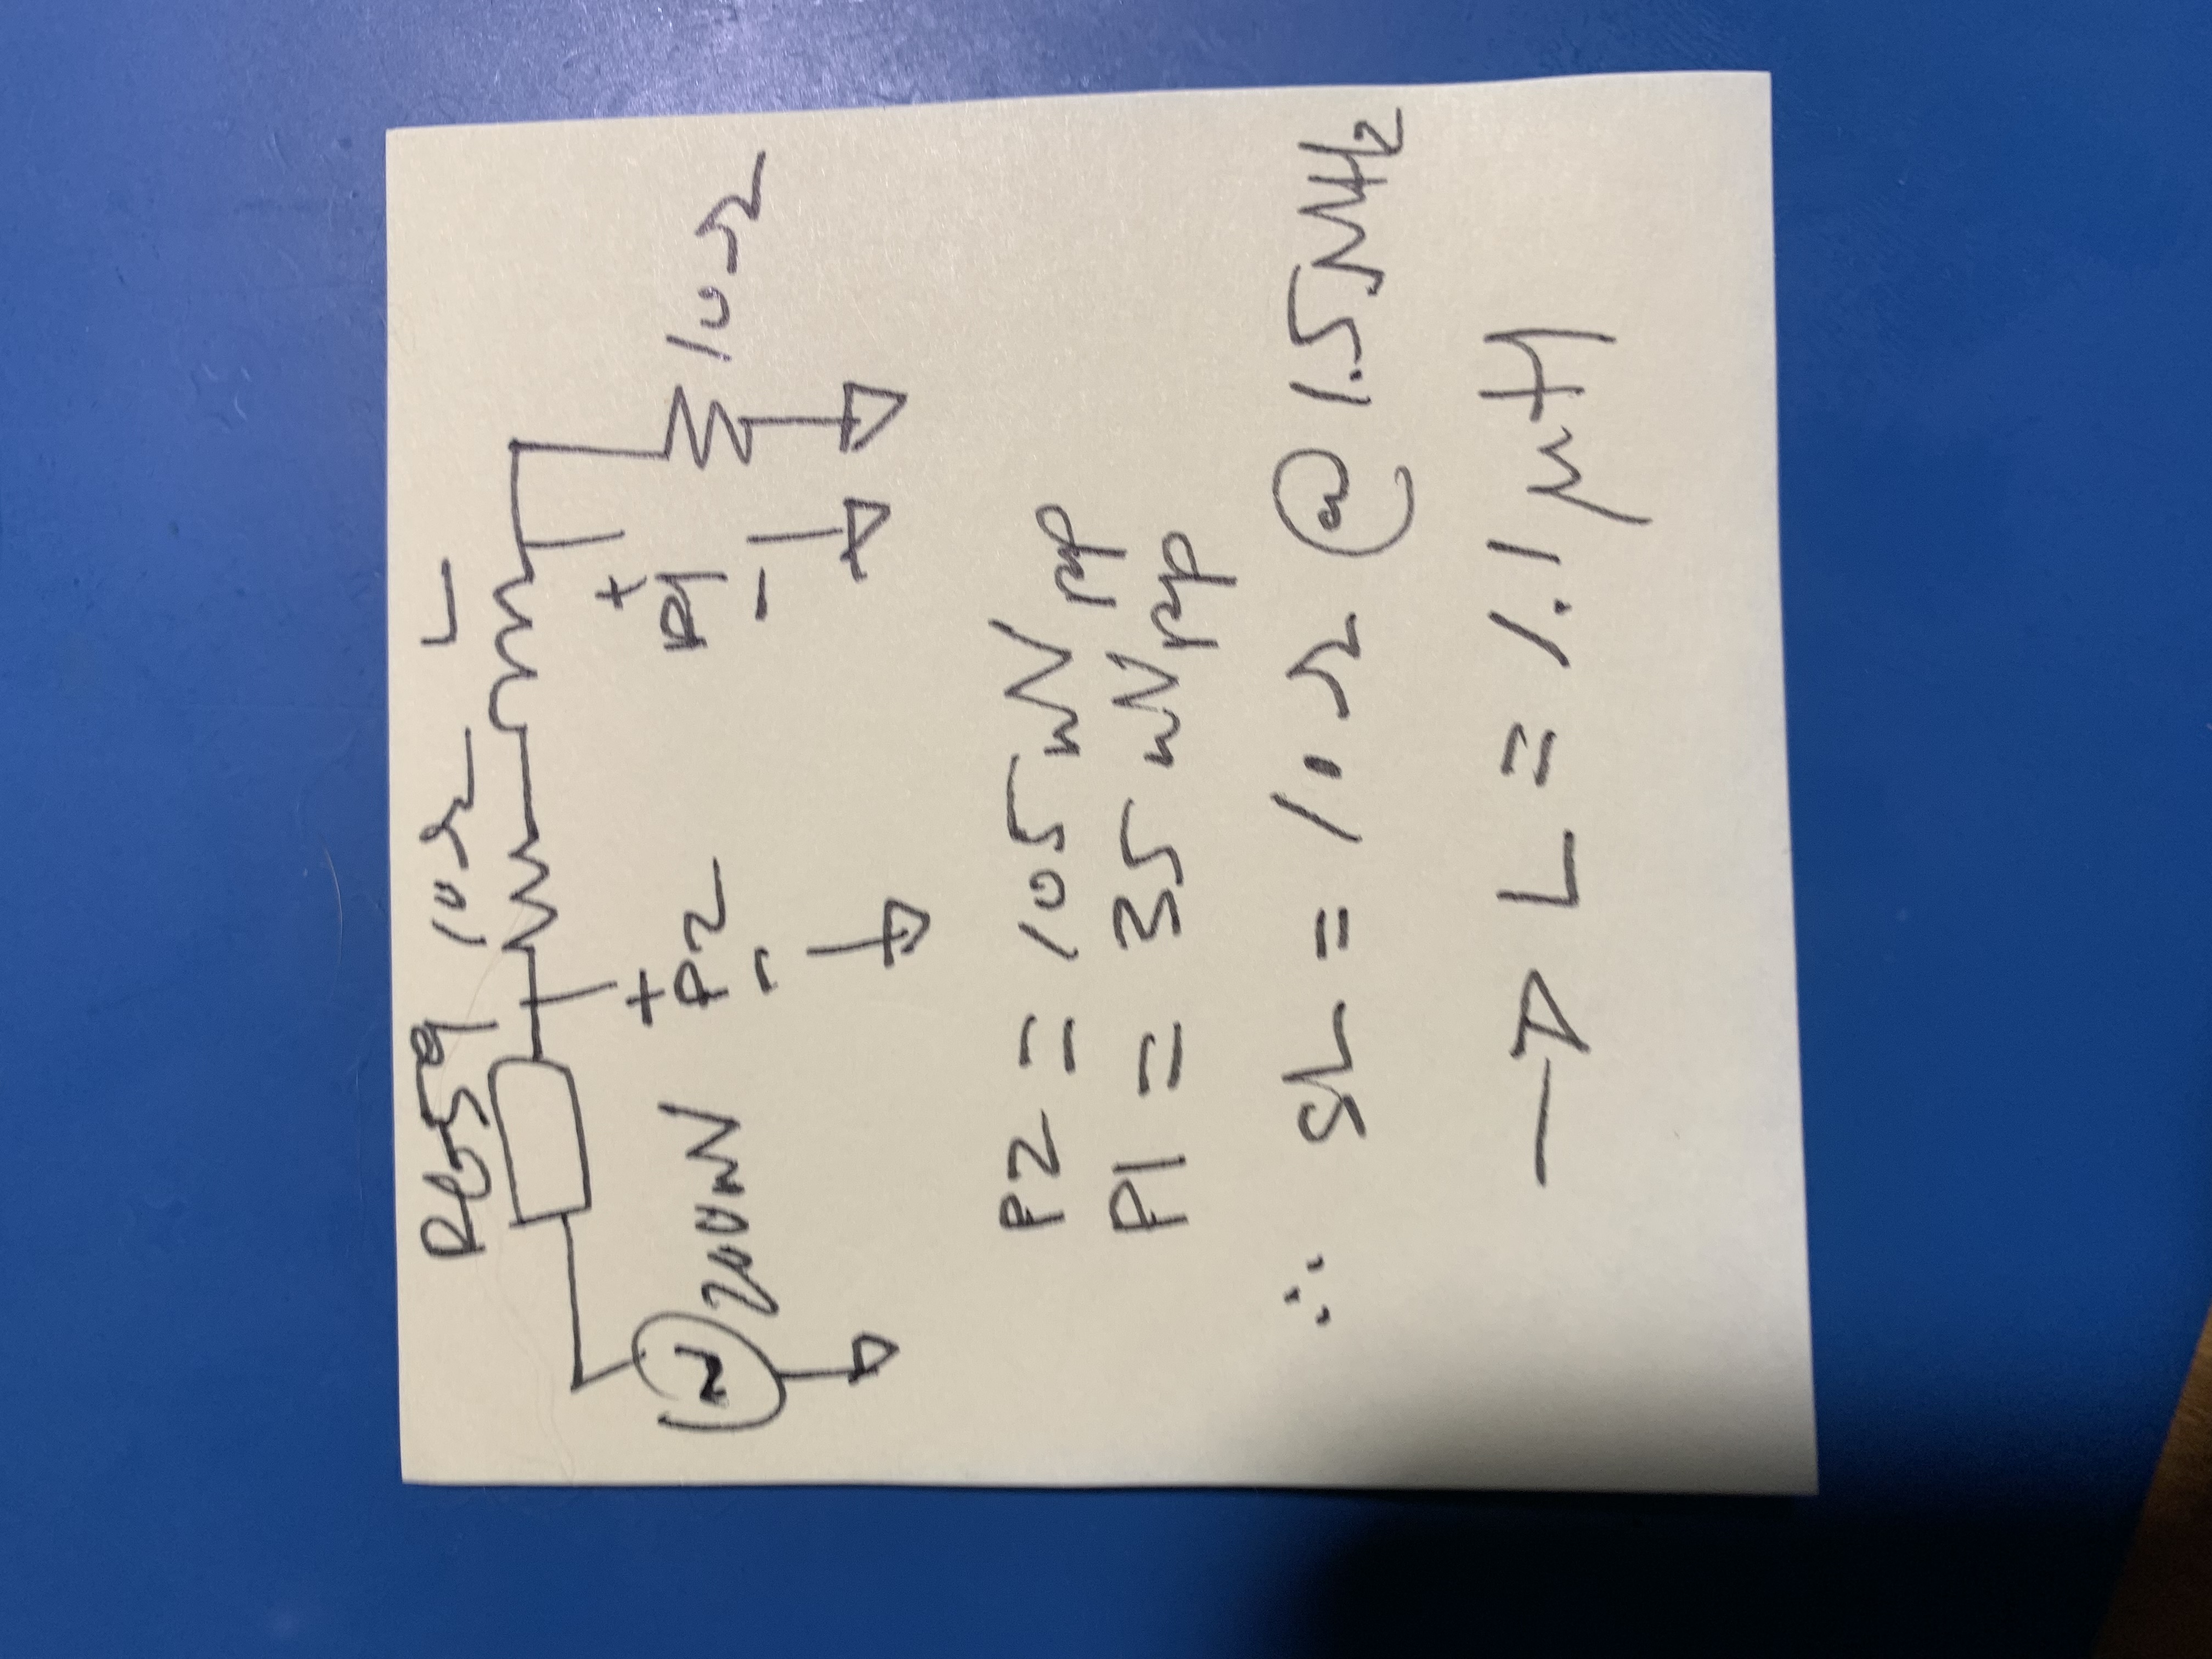 RG59 10Ω L
200mV + P2 - + P1 - 10Ω
P2 = 105 mVpp
P1 = 35 mVpp
∴ SL = 10 Ω @ 1.5 MHz
→ L = 1.1 μH